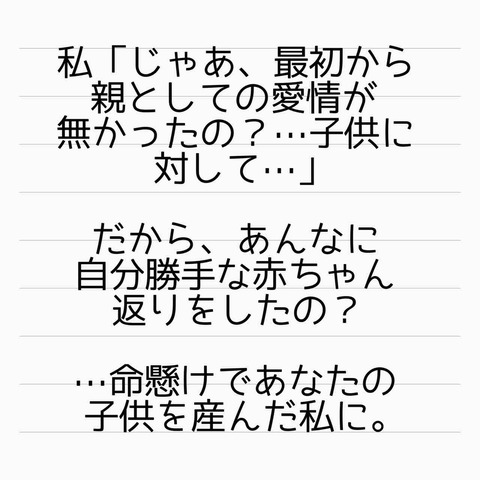 私「じゃあ、最初から
親としての愛情が
無かったの？…子供に
対して…」
だから、あんなに
自分勝手な赤ちゃん
返りをしたの？
…命懸けであなたの
子供を産んだ私に。